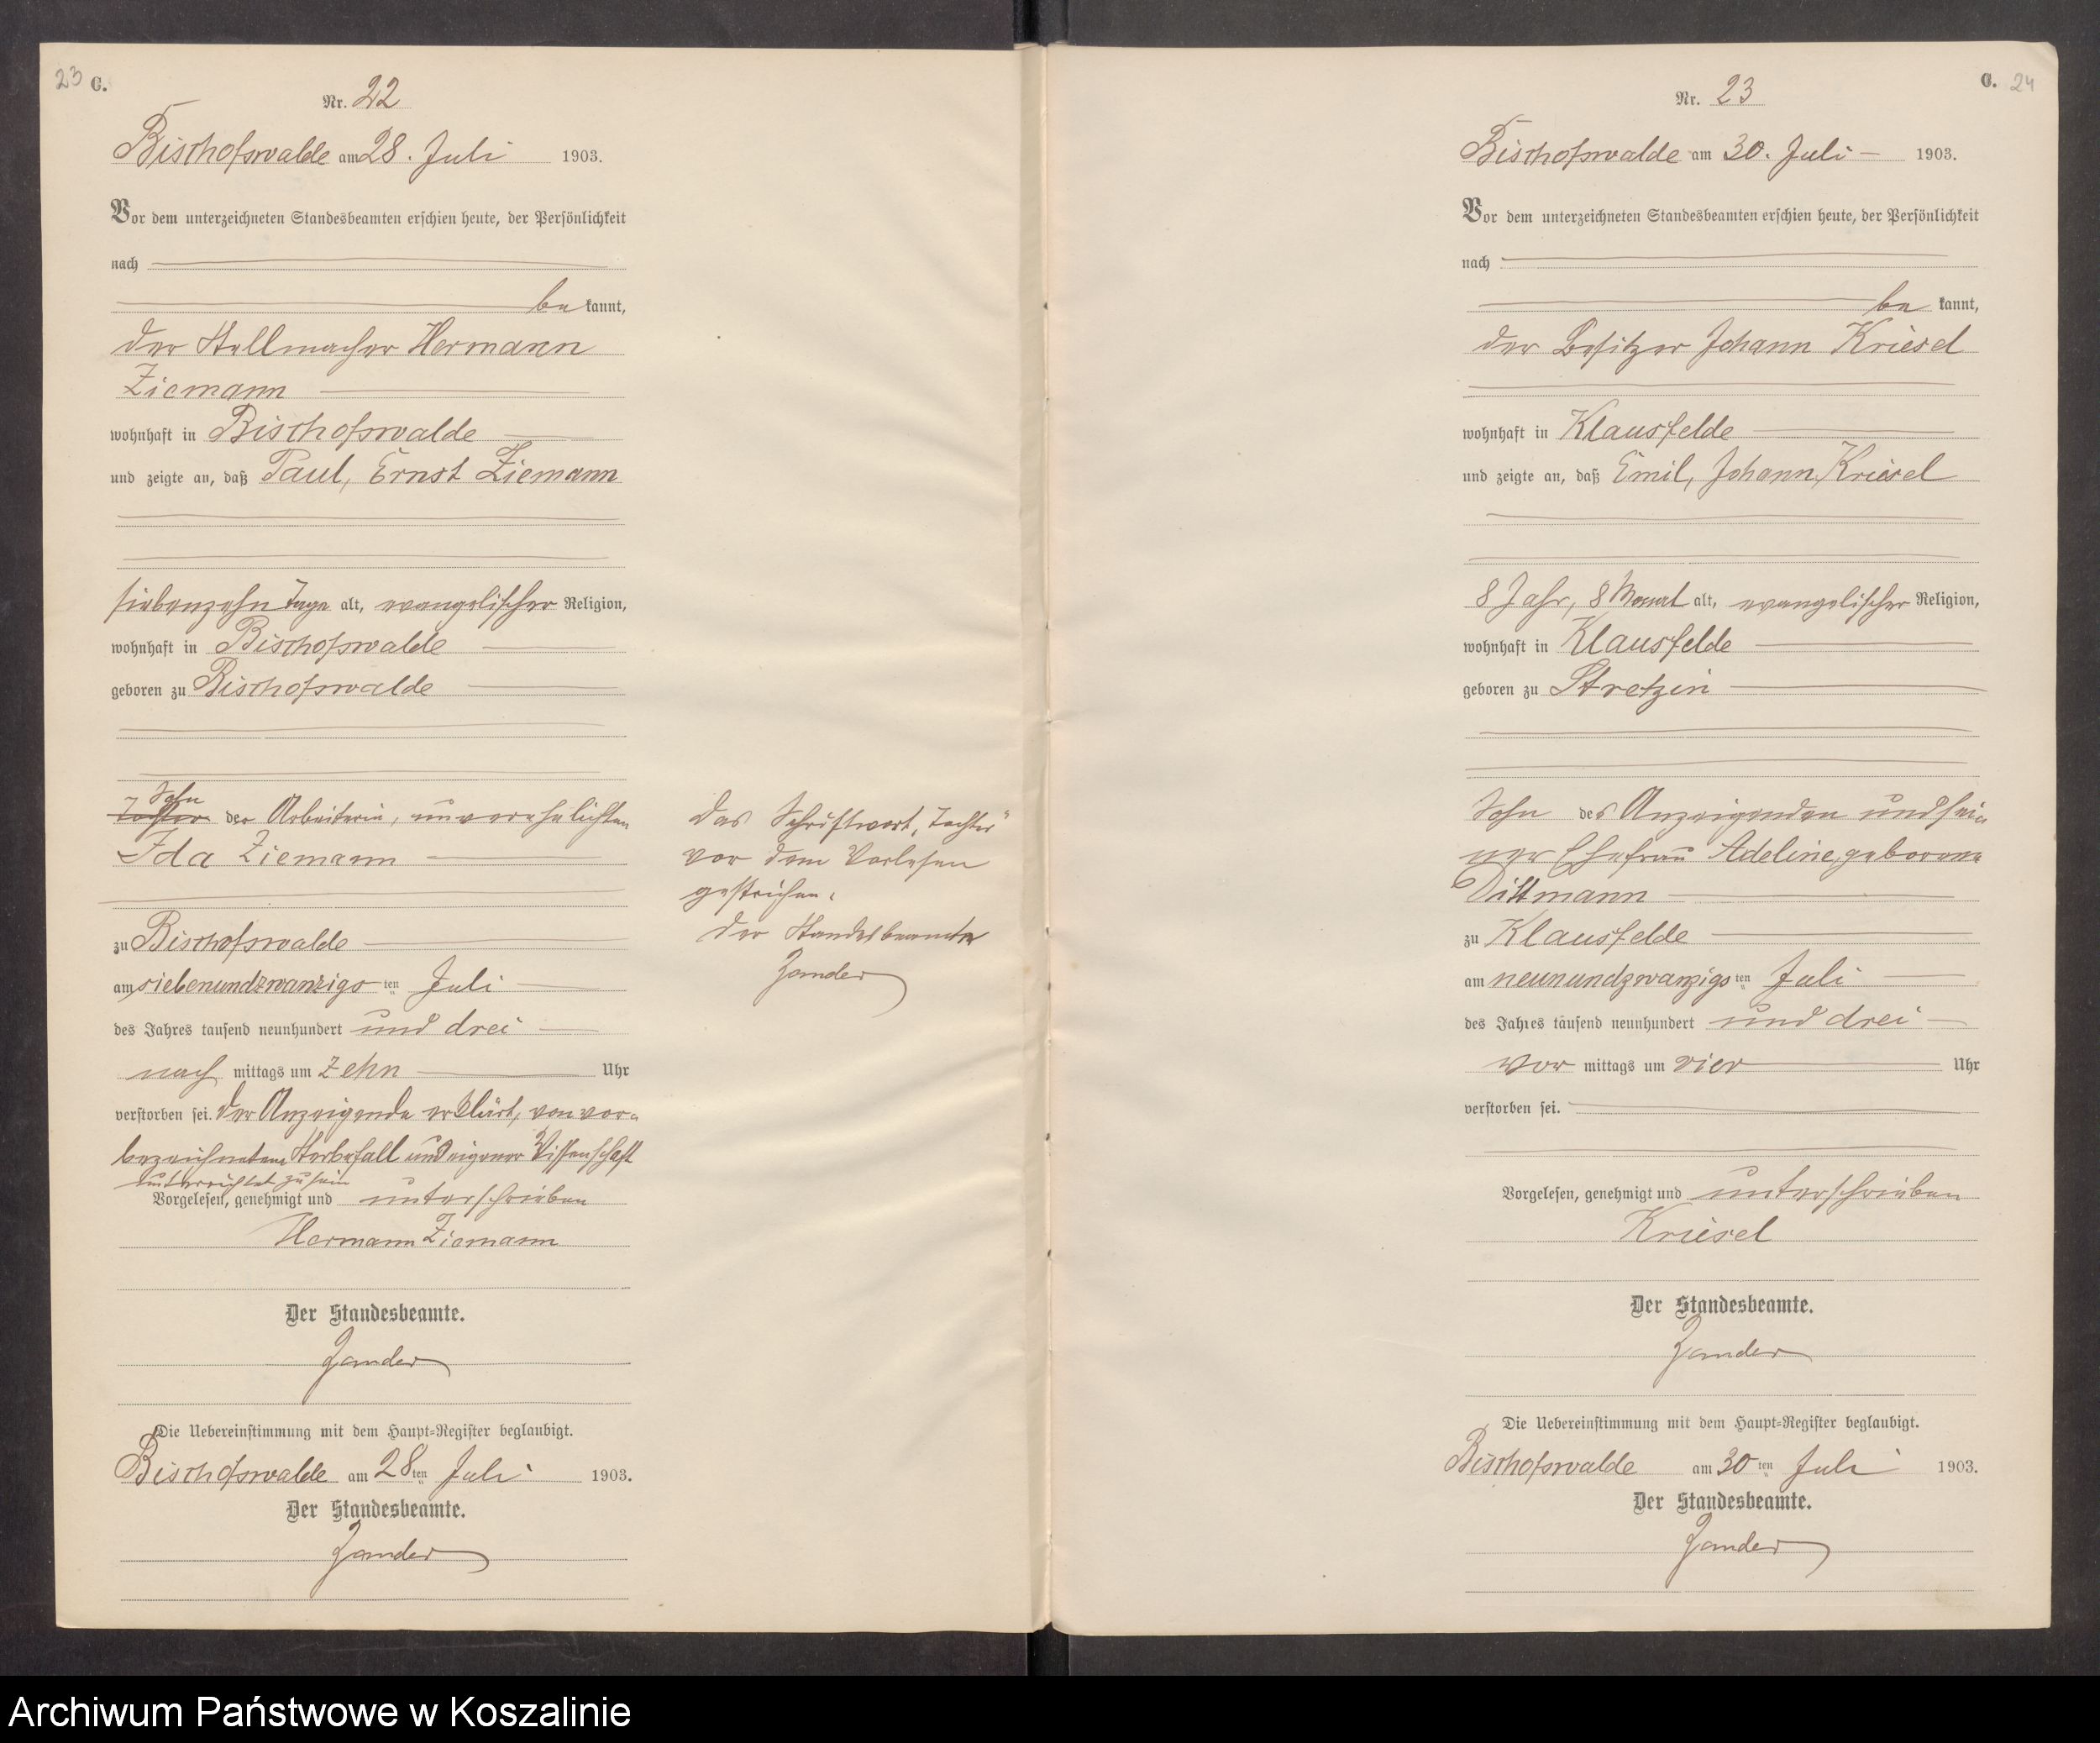 23 C.
Nr. 22
Bischofswalde am 28. Juli 1903.
Vor dem unterzeichneten Standesbeamten erschien heute, der Persönlichkeit
nach
be kannt,
der Stellmacher Hermann
Ziemann
wohnhaft in Bischofswalde
und zeigte an, daß Paul, Ernst Ziemann
siebenzehn Tage alt, evangelischer Religion,
wohnhaft in Bischofswalde
geboren zu Bischofswalde
Sohn
Tochter der Arbeiterin, unverehelichten
Ida Ziemann
zu Bischofswalde
am siebenundzwanzigsten Juli
des Jahres tausend neunhundert und drei
nach mittags um zehn Uhr
verstorben sei. Der Anzeigende erklärt, von vor-
bezeichnetem Sterbefall aus eigener Wissenschaft
unterrichtet zu sein
Vorgelesen, genehmigt und unterschrieben
Hermann Ziemann
Der Standesbeamte.
Zander
Die Uebereinstimmung mit dem Haupt-Register beglaubigt.
Bischofswalde am 28ten Juli 1903.
Der Standesbeamte.
Zander
Das Schriftwort „Tochter"
vor dem Vorlesen
gestrichen.
Der Standesbeamte
Zander
C. 24
Nr. 23
Bischofswalde am 30. Juli 1903.
Vor dem unterzeichneten Standesbeamten erschien heute, der Persönlichkeit
nach
be kannt,
der Besitzer Johann Kriesel
wohnhaft in Klausfelde
und zeigte an, daß Emil, Johann Kriesel
8 Jahr, 8 Monat alt, evangelischer Religion,
wohnhaft in Klausfelde
geboren zu Stretzin
Sohn des Anzeigenden und sei-
ner Ehefrau Adeline, geborene
Dittmann
zu Klausfelde
am neunundzwanzigsten Juli
des Jahres tausend neunhundert und drei
vor mittags um vier Uhr
verstorben sei.
Vorgelesen, genehmigt und unterschrieben
Kriesel
Der Standesbeamte.
Zander
Die Uebereinstimmung mit dem Haupt-Register beglaubigt.
Bischofswalde am 30ten Juli 1903.
Der Standesbeamte.
Zander
Archiwum Państwowe w Koszalinie